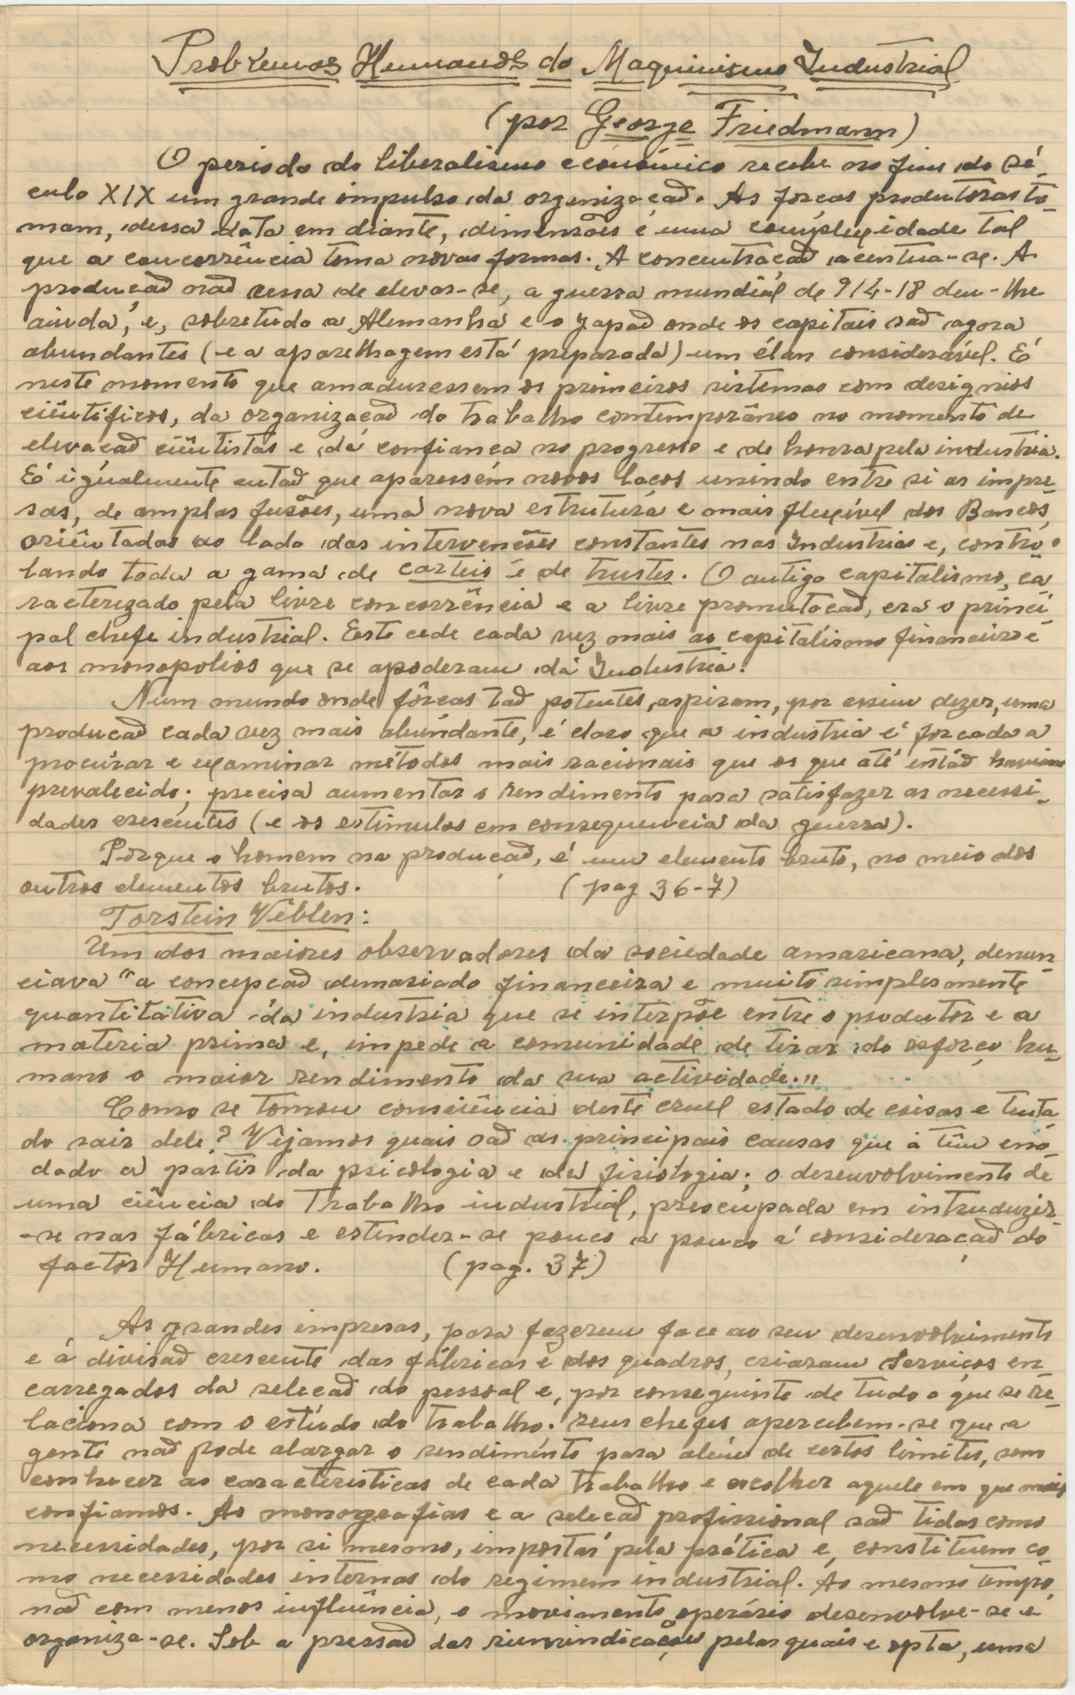 Problemas Humanos do Maquinismo Industrial
(por George Friedmann)
O periodo do liberalismo económico recebe no fim do sé-
culo XIX um grande impulso da organização. As forças produtoras to-
mam, dessa data em diante, dimensões e uma complexidade tal
que a concorrência toma novas formas. A concentração acentua-se. A
produção não cessa de elevar-se, a guerra mundial de 914-18 deu-lhe
ainda, e, sobretudo a Alemanha e o Japão onde os capitais são agora
abundantes (e a aparelhagem está preparada) um élan considerável. É
neste momento que amaduressem os primeiros sistemas com designios
ciêntificos, da organização do trabalho contemporâneo no momento de
elevação ciêntistas e dá confiança no progresso e de honra pela industria.
É igualmente então que aparessem novos laços unindo entre si as impre-
sas, de amplas fusões, uma nova estrutura e mais flexível dos Bancos,
oriêntadas ao lado das intervenções constantes nas Industrias e, contro-
lando toda a gama de carteis e de trustes. O antigo capitalismo, ca-
racterizado pela livre concorrência e a livre promutocão, era o princi-
pal chefe industrial. Este cede cada vez mais ao capitalismo financeiro e
aos monopolios que se apoderam dá Industria!
Num mundo onde fôrças tão potentes, aspiram, por assim dizer, uma
produção cada vez mais abundante, é claro que a indústria é forçada a
procurar e examinar métodos mais racionais que os que até então haviam
prevalecido; precisa aumentar o rendimento para satisfazer as necessi-
dades crescentes (e os estimulos em consequencia da guerra).
Porque o homem na produção, é um elemento bruto, no meio dos
outros elementos brutos. (pag 36-7)
Torstein Veblen:
Um dos maiores observadores da sociedade amaricana, denun-
ciava "a concepção demasiado financeira e muito simplesmente
quantitativa dá industria que se interpõe entre o produtor e a
materia prima e, impede a comunidade de tirar do esforço hu-
mano o maior rendimento da sua actividade."
Como se tomou consciência deste cruel estado de coisas e tenta-
do sair dele? Vejamos quais são as principais causas que a têm
dado a partir da psicologia e da fisiologia; o desenvolvimento de
uma ciência do Trabalho industrial, preocupada em intruduzir-
-se nas fábricas e estender-se pouco a pouco á consideração do
factor Humano. (pag. 37)
As grandes impresas, para fazerem face ao seu desenvolvimento
e á divisão crescente das fábricas e dos quadros, criaram Serviços en-
carregados da seleção do pessoal e, por conseguinte de tudo o que se re-
laciona com o estudo do trabalho. seus chefes apercebem-se que a
gente não pode alargar o rendimento para além de certos limites, sem
conhecer as caracteristicas de cada trabalho e escolher aquele em que mais
confiamos. As monografias e a seleção profissional são tidas como
necessidades, por si mesmo, impostas pela prática e, constituem co-
mo necessidades internas do regimem industrial. Ao mesmo tempo,
não com menos influência, o movimento operário desenvolve-se e
organiza-se. Sob a pressão das reivindicações pelas quais e opta, uma